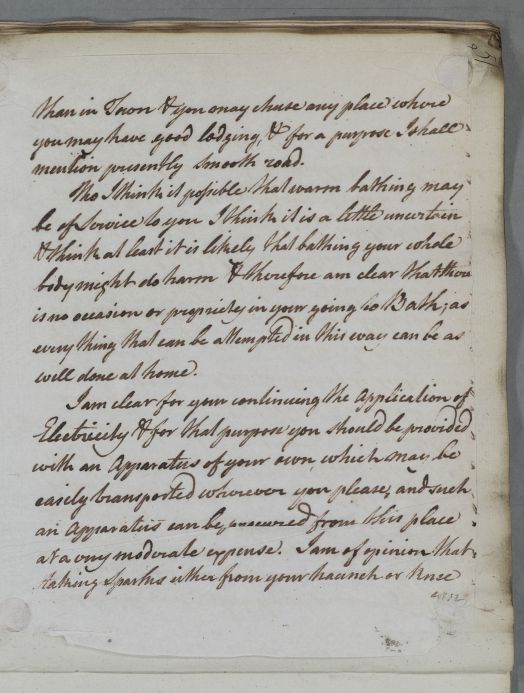 than in Town & you may chuse any place where
you may have good lodging, & for a purpose I shall
mention presently smooth road.
Tho I think it possible that warm bathing may
be of Service to you I think it is a little uncertain
& think at least it is likely that bathing your whole
body might do harm & therefore am clear that there
is no occasion or propriety in your going to Bath; as
every thing that can be attempted in this way can be as
well done at home.
I am clear for your continuing the Application of
Electricity & for that purpose you should be provided
with an Apparatus of your own which may be
easily transported wherever you please, and such
an Apparatus can be procured from this place
at a very moderate expense. I am of opinion that
taking sparks either from your haunch or Knee